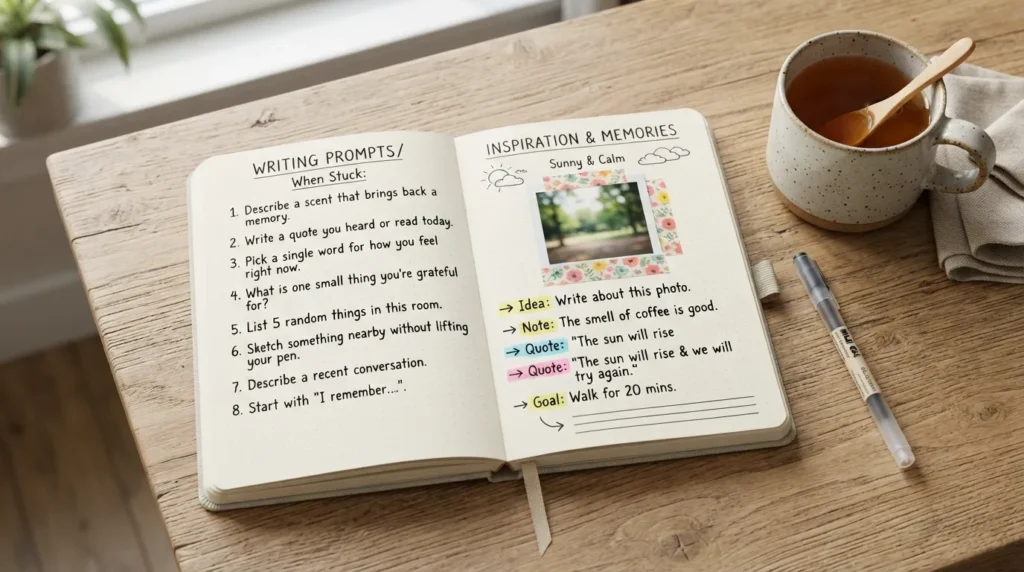 WRITING PROMPTS/
When Stuck:
1. Describe a scent that brings back a
memory.
2. Write a quote you heard or read today.
3. Pick a single word for how you feel
right now.
4. What is one small thing you're grateful
for?
5. List 5 random things in this room.
6. Sketch something nearby without lifting
your pen.
7. Describe a recent conversation.
8. Start with "I remember...".
INSPIRATION & MEMORIES
Sunny & Calm
→ Idea: Write about this photo.
→ Note: The smell of coffee is good.
→ Quote: "The sun will rise
→ Quote: "The sun will rise & we will
try again."
→ Goal: Walk for 20 mins.